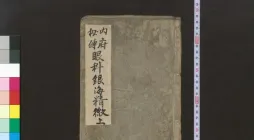 内府
秘傳
眼科銀海精微上